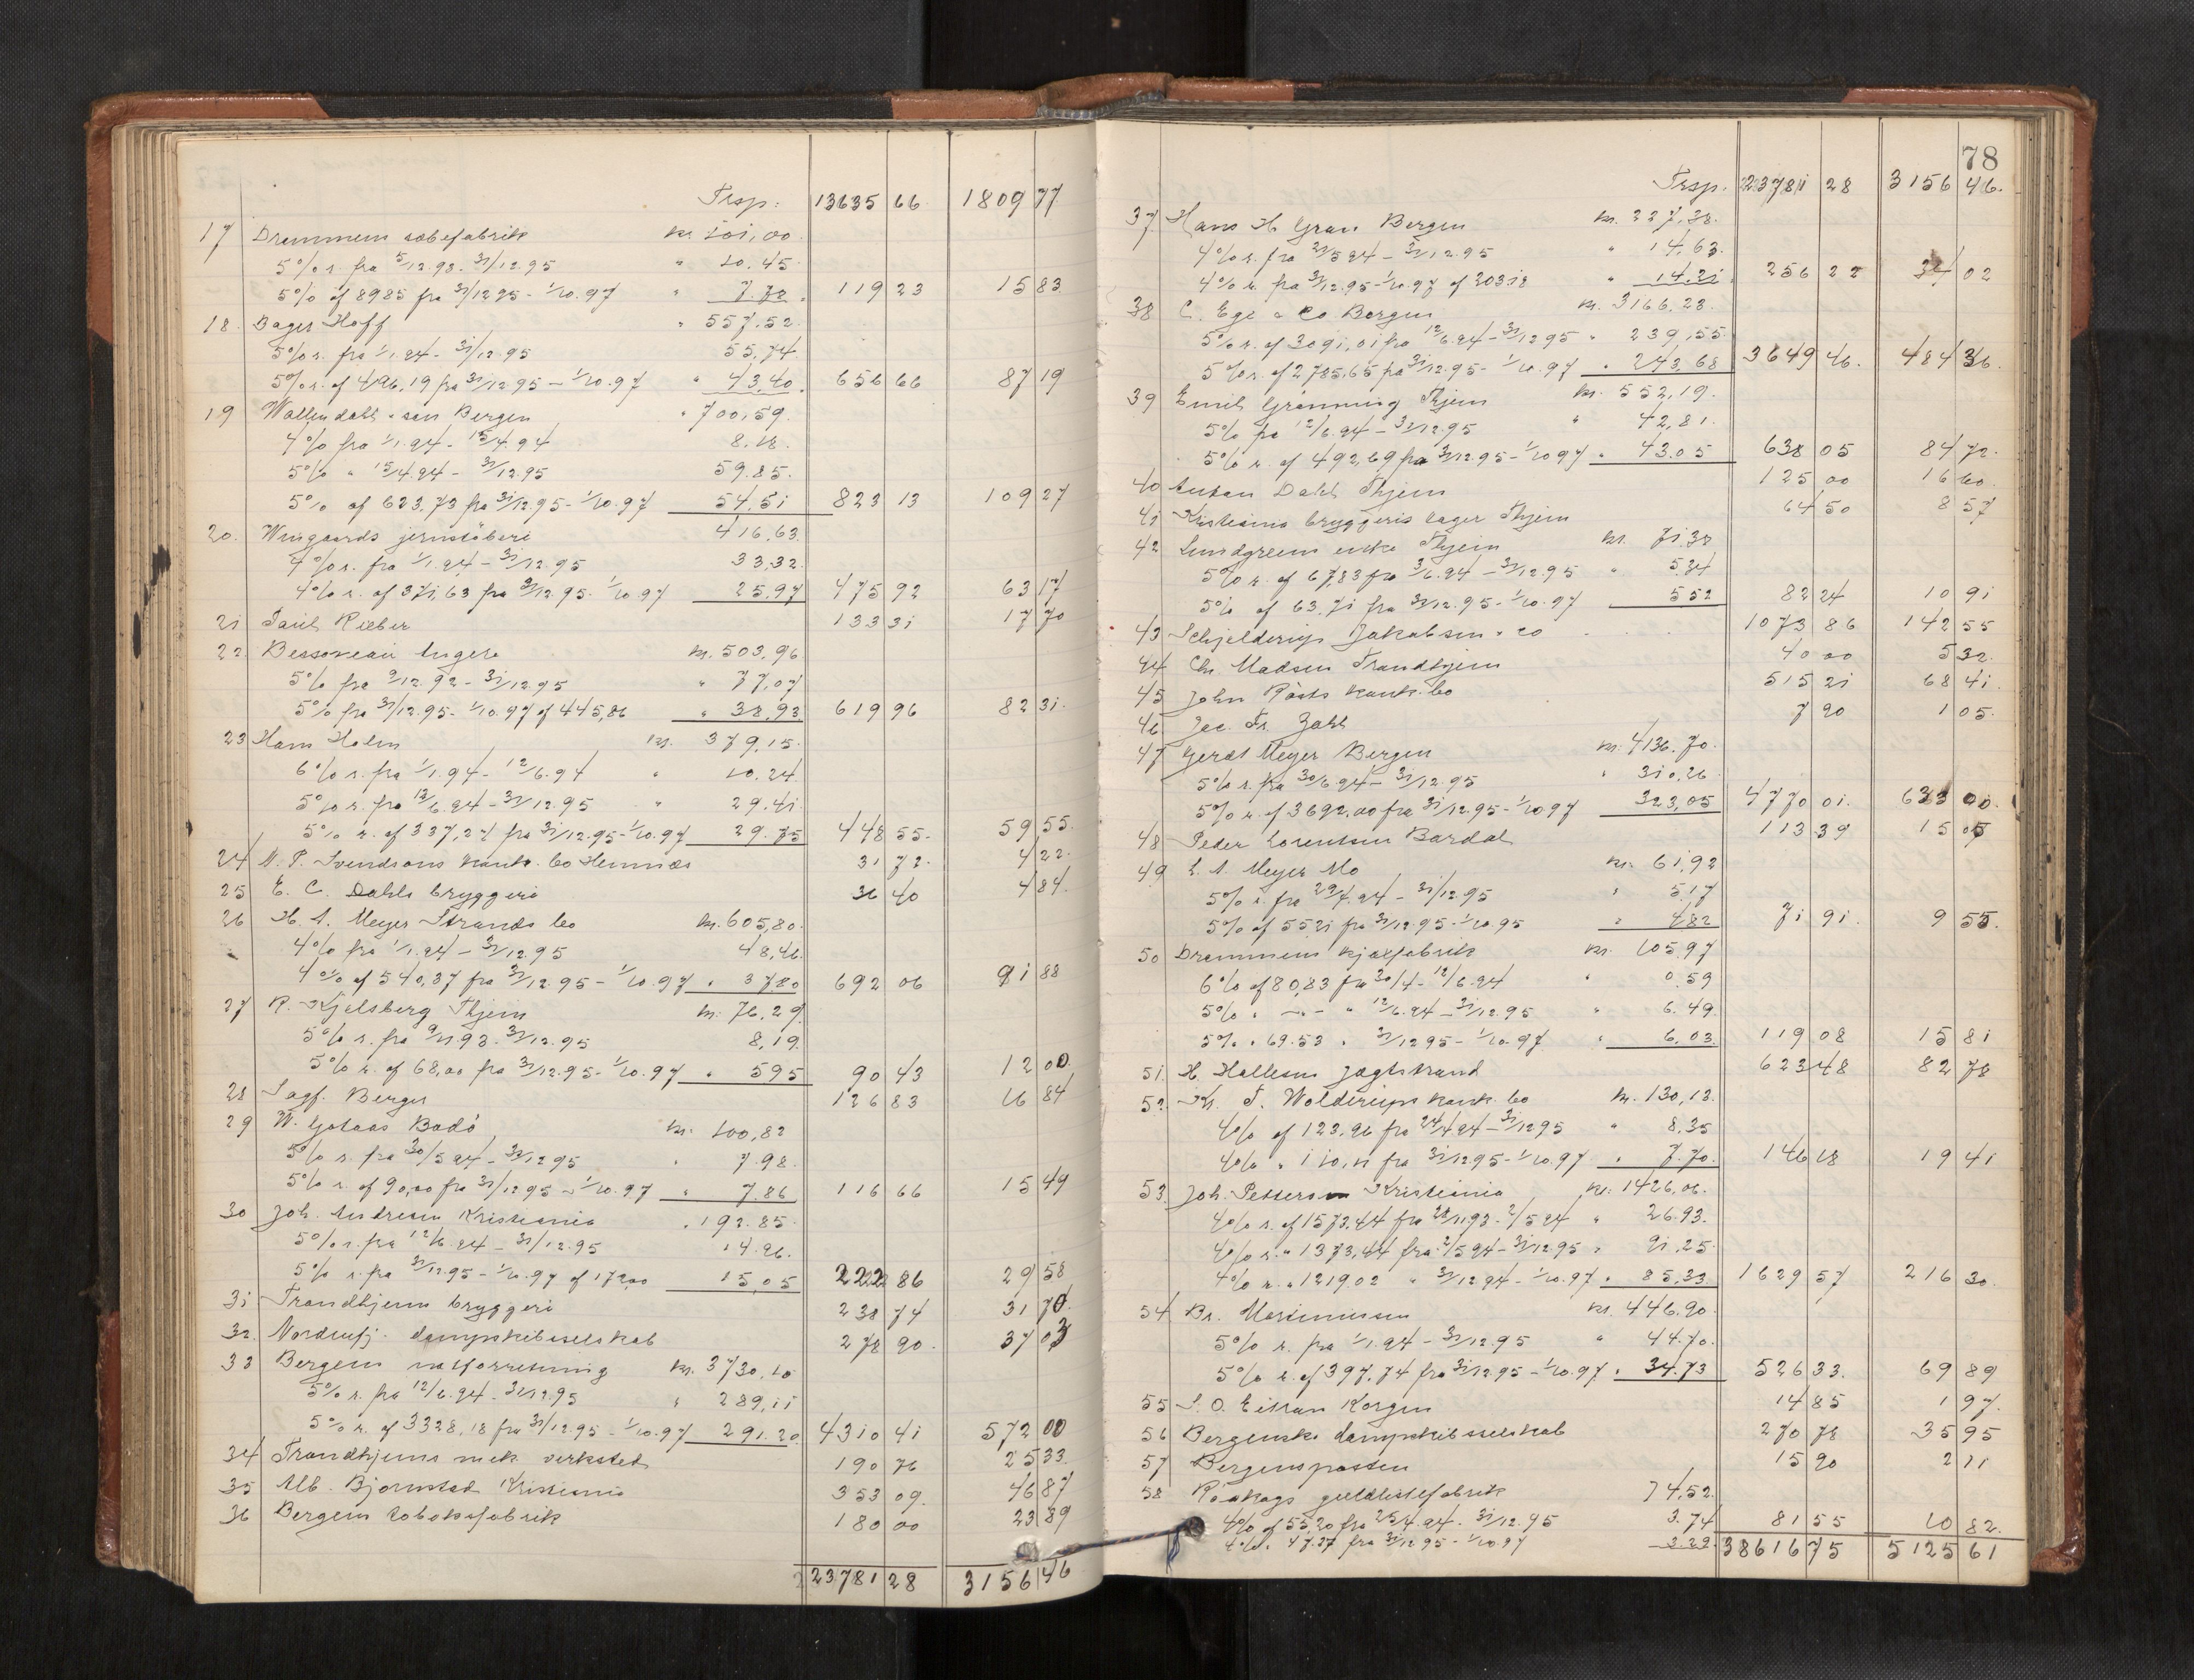 Trsp: 13635 66 1809 77
17 Drammens sæbefabrik kr. 101,00
5% r. fra 5/12.93 - 31/12.95 " 10.45
5% af 8985 fra 31/12 95 - 1/10.97 " 7.78 119 23 15 83
18. Dages Hoff " 557.52
5% r. fra 1/1.94 - 31/12.95 55,74
5% r. af 496,19 fra 31/12.95 - 1/10.97 " 43.40 656 66 87 19
19 Wallendahl & søn Bergen " 700,59.
4% fra 1/1.94 - 15/4.94 8.18.
5% " 15/4.94 - 31/12.95 59.85.
5% af 623,73 fra 31/12.95 - 1/10.97 54.51 823 13 109 27
20. Wingaards jernstøberi 416,63.
4% r. fra 1/1.94 - 31/12.95 33,32.
4% r. af 371,63 fra 31/12.95 - 1/10.97 25.97 475 92 63 17
21 Paul Rieber 133 31 17 70
22. Bessoneau Angers kr. 503,96
5% fra 9/12.92 - 31/12.95 " 77,07
5% fra 31/12.95 - 1/10.97 af 445,86 " 38.93 619 96 82 31.
23 Ham Holm kr. 379,15.
6% r. fra 1/1.94 - 12/6.94 " 10.24
5% r. fra 12/6.94 - 31/12.95 " 29.41.
5% r. af 337,24 fra 31/12.95 - 1/10.97 29.75 448 55. 59 55.
24 N. P. Svendsens konk. bo Hemnæs 31 72. 4 22.
25 E. C. Dahls bryggeri 36 40 4 84.
26 H. A. Meyer Strands bo kr. 605,80.
4% fra 1/1.94 - 31/12.95 48,46.
4% af 540,37 fra 31/12.95 - 1/10.97 " 37.80 692 06 91 88
27 R. Kjelsberg Thjem kr. 76,29.
5% r. fra 9/11.93. 31/12.95 8,19.
5% r. af 68,00 fra 31/12.95 - 1/10.97 " 5.95 90 43 12 00
28 Sagf. Berger 126 83 16 84
29 W. Gotaas Bodø kr. 100,82
5% r. fra 30/5 94 - 31/12 95 " 7.98.
5% r. af 90,00 fra 31/12 95 - 1/10.97 " 7.86 116 66 15 49
30 Joh. Andresen Kristiania " 192.85.
5% r. fra 12/6.94 - 31/12.95 14.96.
5% r. fra 31/12.95 - 1/10.97 af 172,00 15,05 222 86 29 58
31 Trondhjems bryggeri 238 74 31 70.
32. Nordenfj. dampskibsselskab 278 90. 37 03
33 Bergens uldforretning kr. 3730,10
5% r. fra 12/6.94 - 31/12.95 " 289,11
5% r. af 3328,18 fra 31/12.95 - 1/10.97 291.20 4310 41 572 00
34 Trondhjems mek. verksted 190 76 25 33.
35 Alb. Bjørnstad Kristiania 353 09. 46 87
36 Bergens tobaksfabrik 180 00 23 89
23781 28 3156 46
78
Trsp. 23781 28 3156 46.
37 Hans H Gran Bergen kr. 227,38.
4% r. fra 21/5 94 - 31/12.95 " 14,63.
4% r. fra 31/12.95 - 1/10.97 af 20318 " 14.21 256 22 34 02
38 C. Ege & Co Bergen kr. 3166,23.
5% r. af 3091,01 fra 12/6.94 - 31/12 95 " 239,55.
5% r. af 2785,65 fra 31/12.95 - 1/10.97 " 243,68 3649 46. 484 36.
39 Emil Grønning Thjem kr. 552,19.
5% fra 12/6.94 - 31/12.95 " 42,81.
5% r. af 492,69 fra 31/12.95 - 1/10 97 " 43.05 638 05 84 72.
40 Anton Dahl Thjem 125 00 16 60.
41 Kristiania bryggeris lager Thjem 64 50 8 57
42 Lundgreens enke Thjem kr. 71,38
5% r. af 67,83 fra 3/6.94 - 31/12.95 " 5.34
5% af 63,71 fra 31/12.95 - 1/10.97 5 52 82 24 10 91
43 Schjelderup Jakobsen & Co 1073 86 142 55
44 Chr. Madsen Trondhjem 40 00 5 32.
45 John Røsts konk. bo 515 21 68 41.
46 Jac. Fr. Zahl 7 90 1 05.
47 Gerdt Meyer Bergen kr. 4136.70.
5% r. fra 30/6.94 - 31/12.95 " 310,26
5% r. af 3692,00 fra 31/12.95 - 1/10 97 323,05 4770 01. 633 00.
48 Peder Lorentsen Bardal 113 39 15 05
49 L. A. Meyer Mo kr. 61,92
5% r. fra 29/7.94 - 31/12.95 " 5,17
5% af 5521 fra 31/12.95 - 1/10 95 " 4.82 71 91. 9 55.
50 Drammens kjolefabrik kr. 105,97
6% af 80,83 fra 30/4 - 12/6.94 " 0.59
5% " -"- " 12/6.94 - 31/12.95 " 6.49.
5% " 69.53 " 31/12 95 - 1/10.97 " 6,03. 119 08 15 81
51. H. Hallesen Jægtstrand 623 48 82 78
52. Kr. F. Wolderups konk. bo kr. 130,13.
4% af 123,96 fra 24/4 94 - 31/12 95 " 8.35
4% " 110,11 fra 31/12 95 - 1/10.97 " 7.70. 146 18 19 41
53. Joh. Petterson Kristiania kr. 1426,06.
4% r. af 1573,44 fra 28/11.93 - 2/5 94 " 26.93.
4% r. " 1373,44 fra 2/5 94 - 31/12.95 " 91.25.
4% r. " 1219.02 " 31/12.94 - 1/10.97 " 85,33. 1629 57 216 30.
54 Br. Martinussen kr. 446.90.
5% r. fra 1/1.94 - 31/12.95 " 44.70.
5% r. af 397,74 fra 31/12.95 - 1/10.97 " 34.73 526 33. 69 89
55 S. O. Eitran Korgen 14 85 1 97.
56 Bergenske dampskibsselskab 270 78 35 95
57 Bergensposten 15 90 2 11
58 guldlistefabrik 74,52.
4% af 55,20 fra 25/4.94 - 31/12.95 3.74 81 55 10 82.
4% " 47.27 fra 31/12 95 - 1/10 97 3.29. 38616 75 5125 61